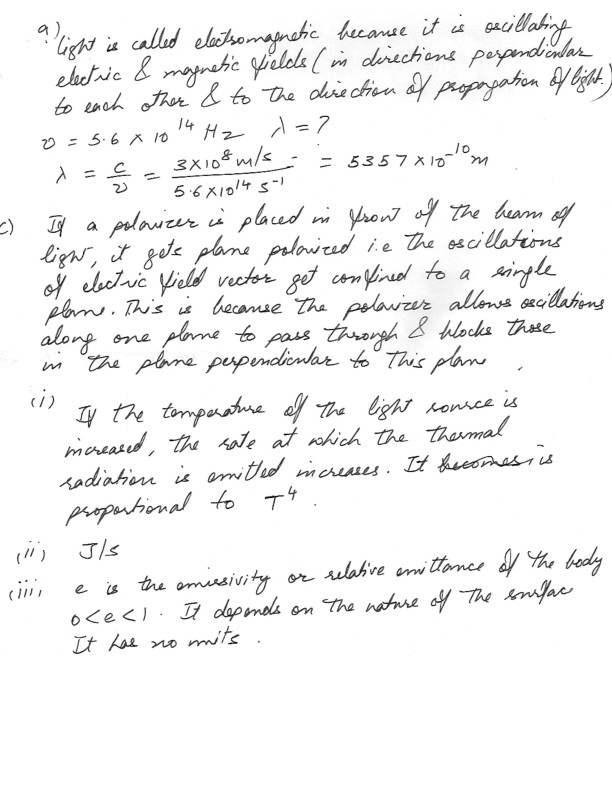 a) light is called electromagnetic because it is oscillating
electric & magnetic fields (in directions perpendicular
to each other & to the direction of propogation of light.)
υ = 5.6 × 10^14 Hz λ = ?
λ = c/υ = (3×10^8 m/s)/(5.6×10^14 s^-1) = 5357 × 10^-10 m
c) If a polarizer is placed in front of the beam of
light, it gets plane polarized i.e the oscillations
of electric field vector get confined to a single
plane. This is because the polarizer allows oscillations
along one plane to pass through & blocks those
in the plane perpendicular to this plane
(i) If the temperature of the light source is
increased, the rate at which the thermal
radiation is emitted increases. It becomes is
proportional to T^4.
(ii) J/s
(iii) e is the emissivity or relative emittance of the body
0<e<1. It depends on the nature of the surface
It has no units.